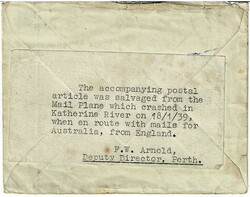 The accompanying postal
article was salvaged from the
Mail Plane which crashed in
Katherine River on 18/1/39,
when en route with mails for
Australia, from England.
F.W. Arnold,
Deputy Director, Perth.